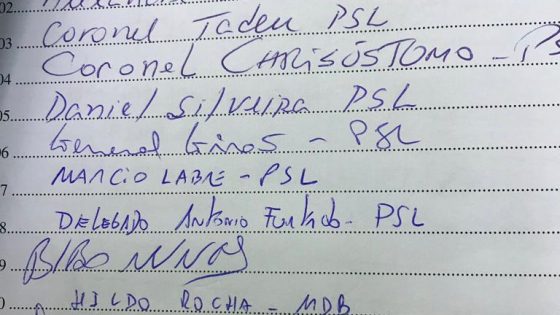 02
03 Coronel Tadeu PSL
04 Coronel CHRISÓSTOMO - PS
05 Daniel Silveira PSL
06 General Girão - PSL
7 MARCIO LABRE - PSL
8 DELEGADO Antonio Furtado - PSL
9 BIBO NUNES
0 HILDO ROCHA - MDB